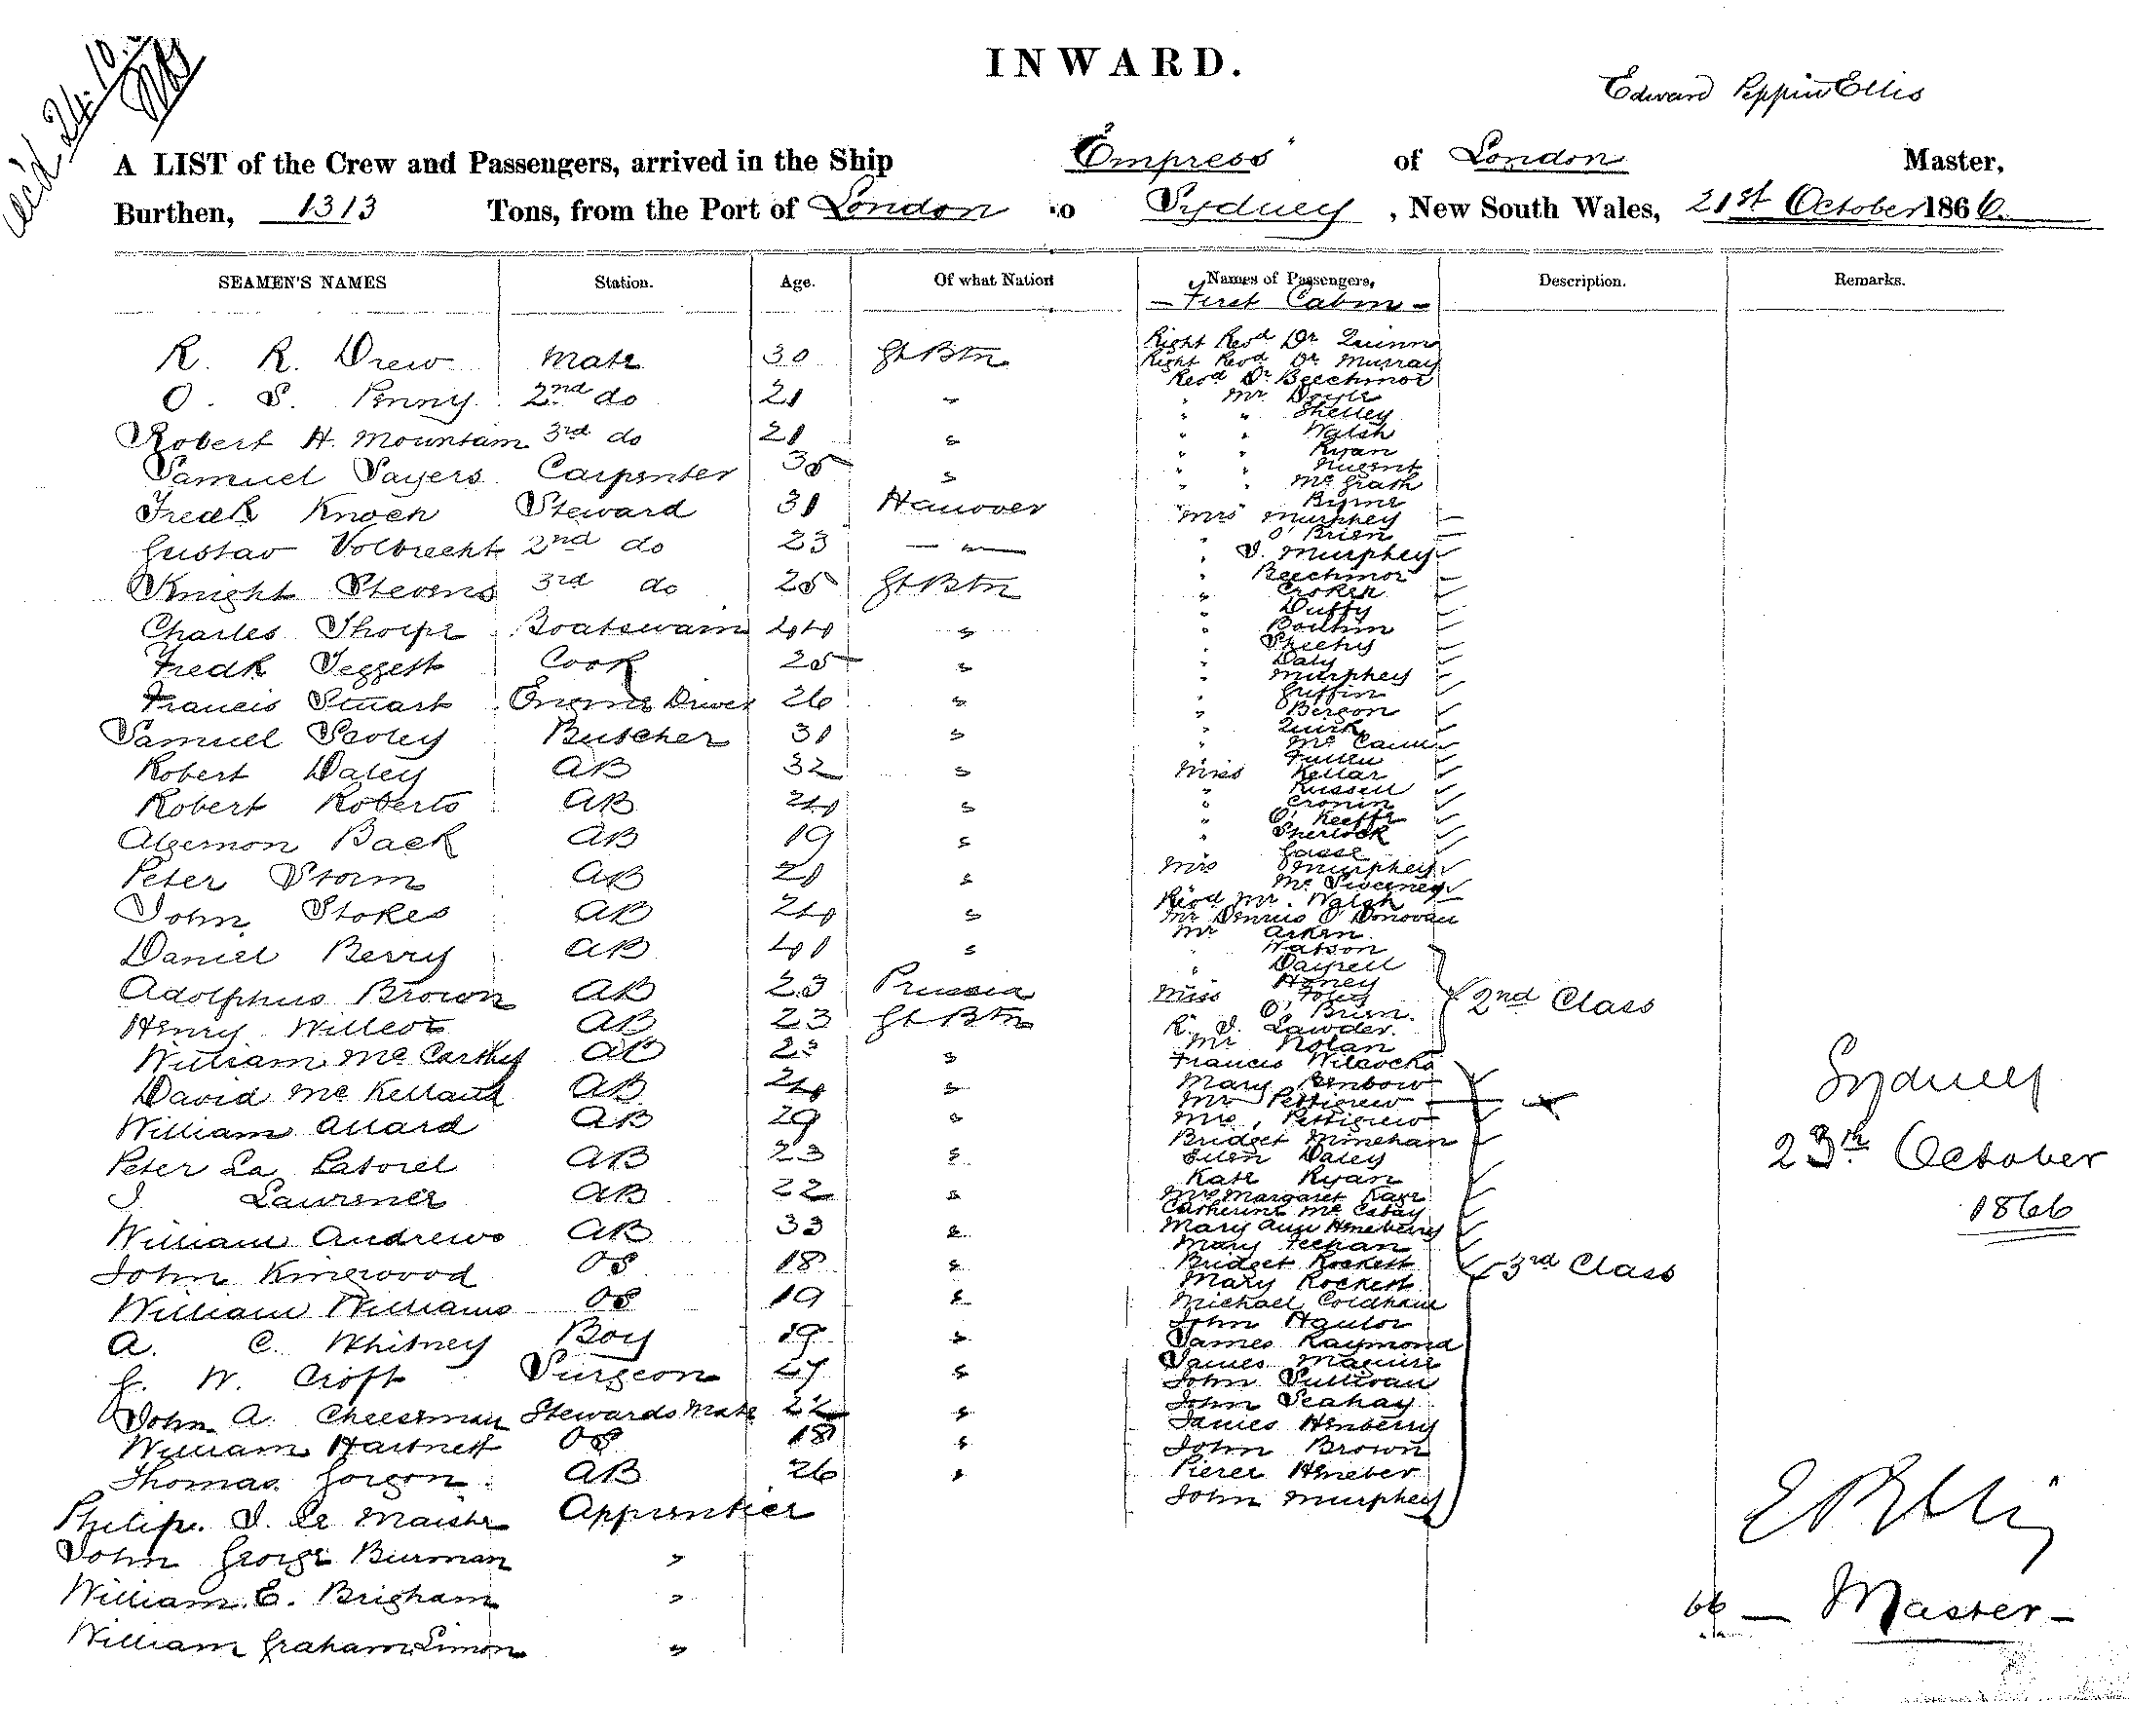 rec'd 24.10.
INWARD.
Edward Peppin Ellis
A LIST of the Crew and Passengers, arrived in the Ship "Empress" of London Master,
Burthen, 1313 Tons, from the Port of London to Sydney, New South Wales, 21st October 1866.
SEAMEN'S NAMES Station. Age. Of what Nation Names of Passengers, Description. Remarks.
- First Cabin -
R. R. Drew Mate 30 Gt Btn
O. S. Penny 2nd do 21 "
Robert H. Mountain 3rd do 21 "
Samuel Sayers Carpenter 35 "
Fredk Knoch Steward 31 Hanover
Gustav Volbrecht 2nd do 23 — " —
Knight Stevens 3rd do 25 Gt Btn
Charles Thorpe Boatswain 44 "
Fredk Teggett Cook 25 "
Francis Stuart Engine Driver 26 "
Samuel Savley Butcher 31 "
Robert Daley AB 32 "
Robert Roberts AB 24 "
Algernon Back AB 19 "
Peter Storm AB 21 "
John Stokes AB 24 "
Daniel Berry AB 41 "
Adolphus Brown AB 23 Prussia
Henry Willcot AB 23 Gt Btn
William McCarthy AB 23 "
David McKelland AB 24 "
William Allard AB 29 "
Peter La Patorel AB 23 "
J Lawrence AB 22 "
William Andrews AB 33 "
John Kingwood OS 18 "
William Williams OS 19 "
A. C. Whitney Boy 19 "
G. W. Croft Surgeon 27 "
John A. Cheesman Stewards Mate 22 "
William Hartnett OS 18 "
Thomas Gorgon AB 26 "
Philip. J. Le Maistre Apprentice
John George Burman "
William E. Brigham "
William Graham Simon "
Right Revd Dr Quinn
Right Revd Dr Murray
Revd Dr Beechmor
" Mr Doyle
" " Shelley
" " Walsh
" " Ryan
" " Nugent
" " McGrath
Byrne
Mrs Murphey
" O'Brien
" J. Murphey
" Beechmor
" Croker
" Duffy
" Boulhin
" Sheehy
" Daly
" Murphey
" Griffin
" Bergon
" Quirk
" McCann
Fullen
Miss Kellar
" Russell
" Cronin
" O'Keeffe
" Sherlock
" Gasse
Mrs Murphey
McSweeney
Revd Mr. Walsh
Mr Dennis O'Donovan
Mr Arken
" Watson
" Dayrell
Honey
Miss Foley
O'Brien
R. J. Lawder
Mr Nolan
2nd Class
Francis Wilcocks
Mary Benbow
Mr Pettigrew
Mrs. Pettigrew
Bridget Minehan
Ellen Daley
Kate Ryan
Mrs Margaret Kaye
Catherine McCabay
Mary Ann Heneberry
Mary Feehan
Bridget Rockett
Mary Rockett
Michael Coldham
John Haulor
James Raymond
James Maguire
John Sullivan
John Leahay
James Henberry
John Brown
Pierce Heneber
John Murphey
3rd Class
Sydney
23rd October
1866
E P Ellis
66 — Master —